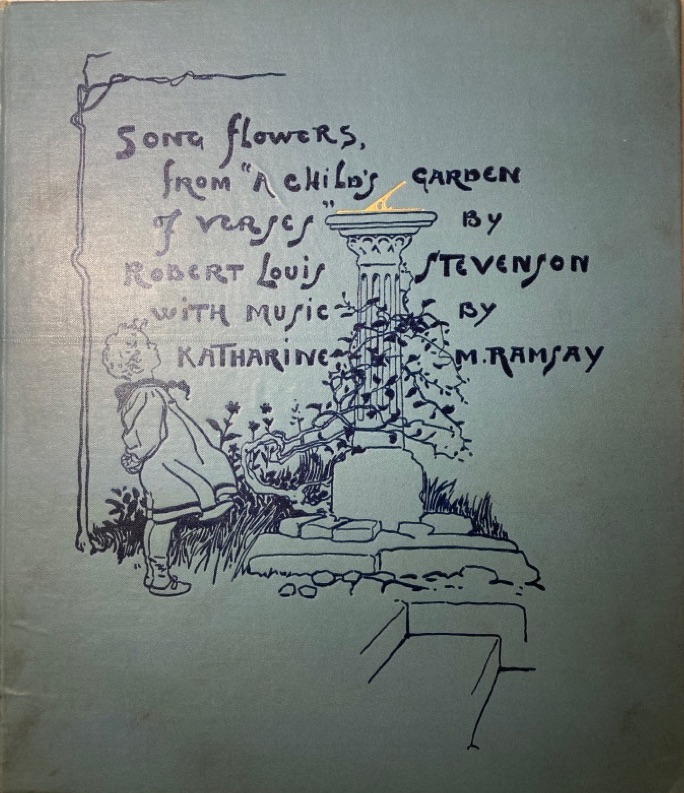 SONG flOWERS,
from "A CHILD'S GARDEN
of VERSES" BY
ROBERT LOUIS STEVENSON
WITH MUSIC BY
KATHARINE M. RAMSAY